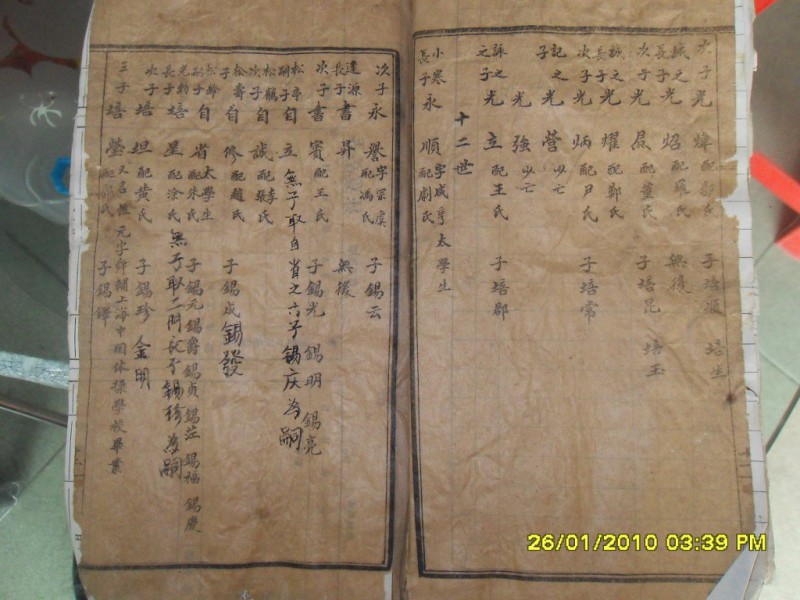 次子光煒配郭氏 子培順 培生
誠之長子光炤配羅氏 無後
次子光晟配董氏 子培昆 培玉
誠之長子光耀配鄭氏
次子光炳配尹氏 子培常
記之子光營以亡
光強以亡
詠之之子光立配王氏 子培郡
十二世
小寒長子永順字成亨太學生配劇氏
次子永譽字宗虞配馮氏 子錫云
達源長子書昇 無後
次子書賓配王氏 子錫光 錫明 錫亮
松亭嗣子自立無子取自省之六子錫庆為嗣
松龍次子自誠配李氏配張氏
徐壽子自修配趙氏 子錫成錫發
松齡嗣子自省太學生配朱氏 子錫元錫爵錫貞錫莊錫福錫慶
光勃長子培星配涂氏無子取二門長子錫珍為嗣
次子培坦配黄氏 子錫珍 金明
三子培瑩又名 元字仰輔上海中国体操學校畢業配 氏 子錫鐸
26/01/2010 03:39 PM